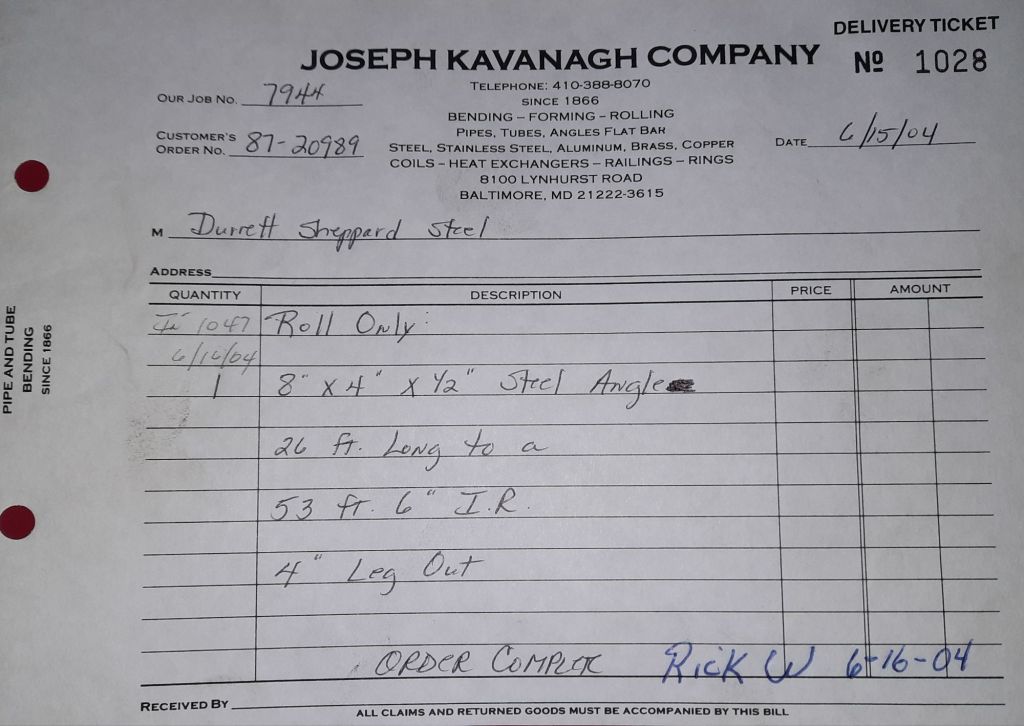 DELIVERY TICKET
JOSEPH KAVANAGH COMPANY
Nº 1028
TELEPHONE: 410-388-8070
SINCE 1866
BENDING – FORMING – ROLLING
PIPES, TUBES, ANGLES FLAT BAR
STEEL, STAINLESS STEEL, ALUMINUM, BRASS, COPPER
COILS – HEAT EXCHANGERS – RAILINGS – RINGS
8100 LYNHURST ROAD
BALTIMORE, MD 21222-3615
OUR JOB NO. 7944
CUSTOMER'S ORDER NO. 87-20989
DATE 6/15/04
M Durrett Sheppard Steel
ADDRESS
QUANTITY DESCRIPTION PRICE AMOUNT
1047 Roll Only:
6/16/04
1 8" X 4" X 1/2" Steel Angle
26 ft. Long to a
53 ft. 6" I.R.
4" Leg Out
ORDER COMPLETE Rick W 6-16-04
RECEIVED BY
ALL CLAIMS AND RETURNED GOODS MUST BE ACCOMPANIED BY THIS BILL
PIPE AND TUBE
BENDING
SINCE 1866